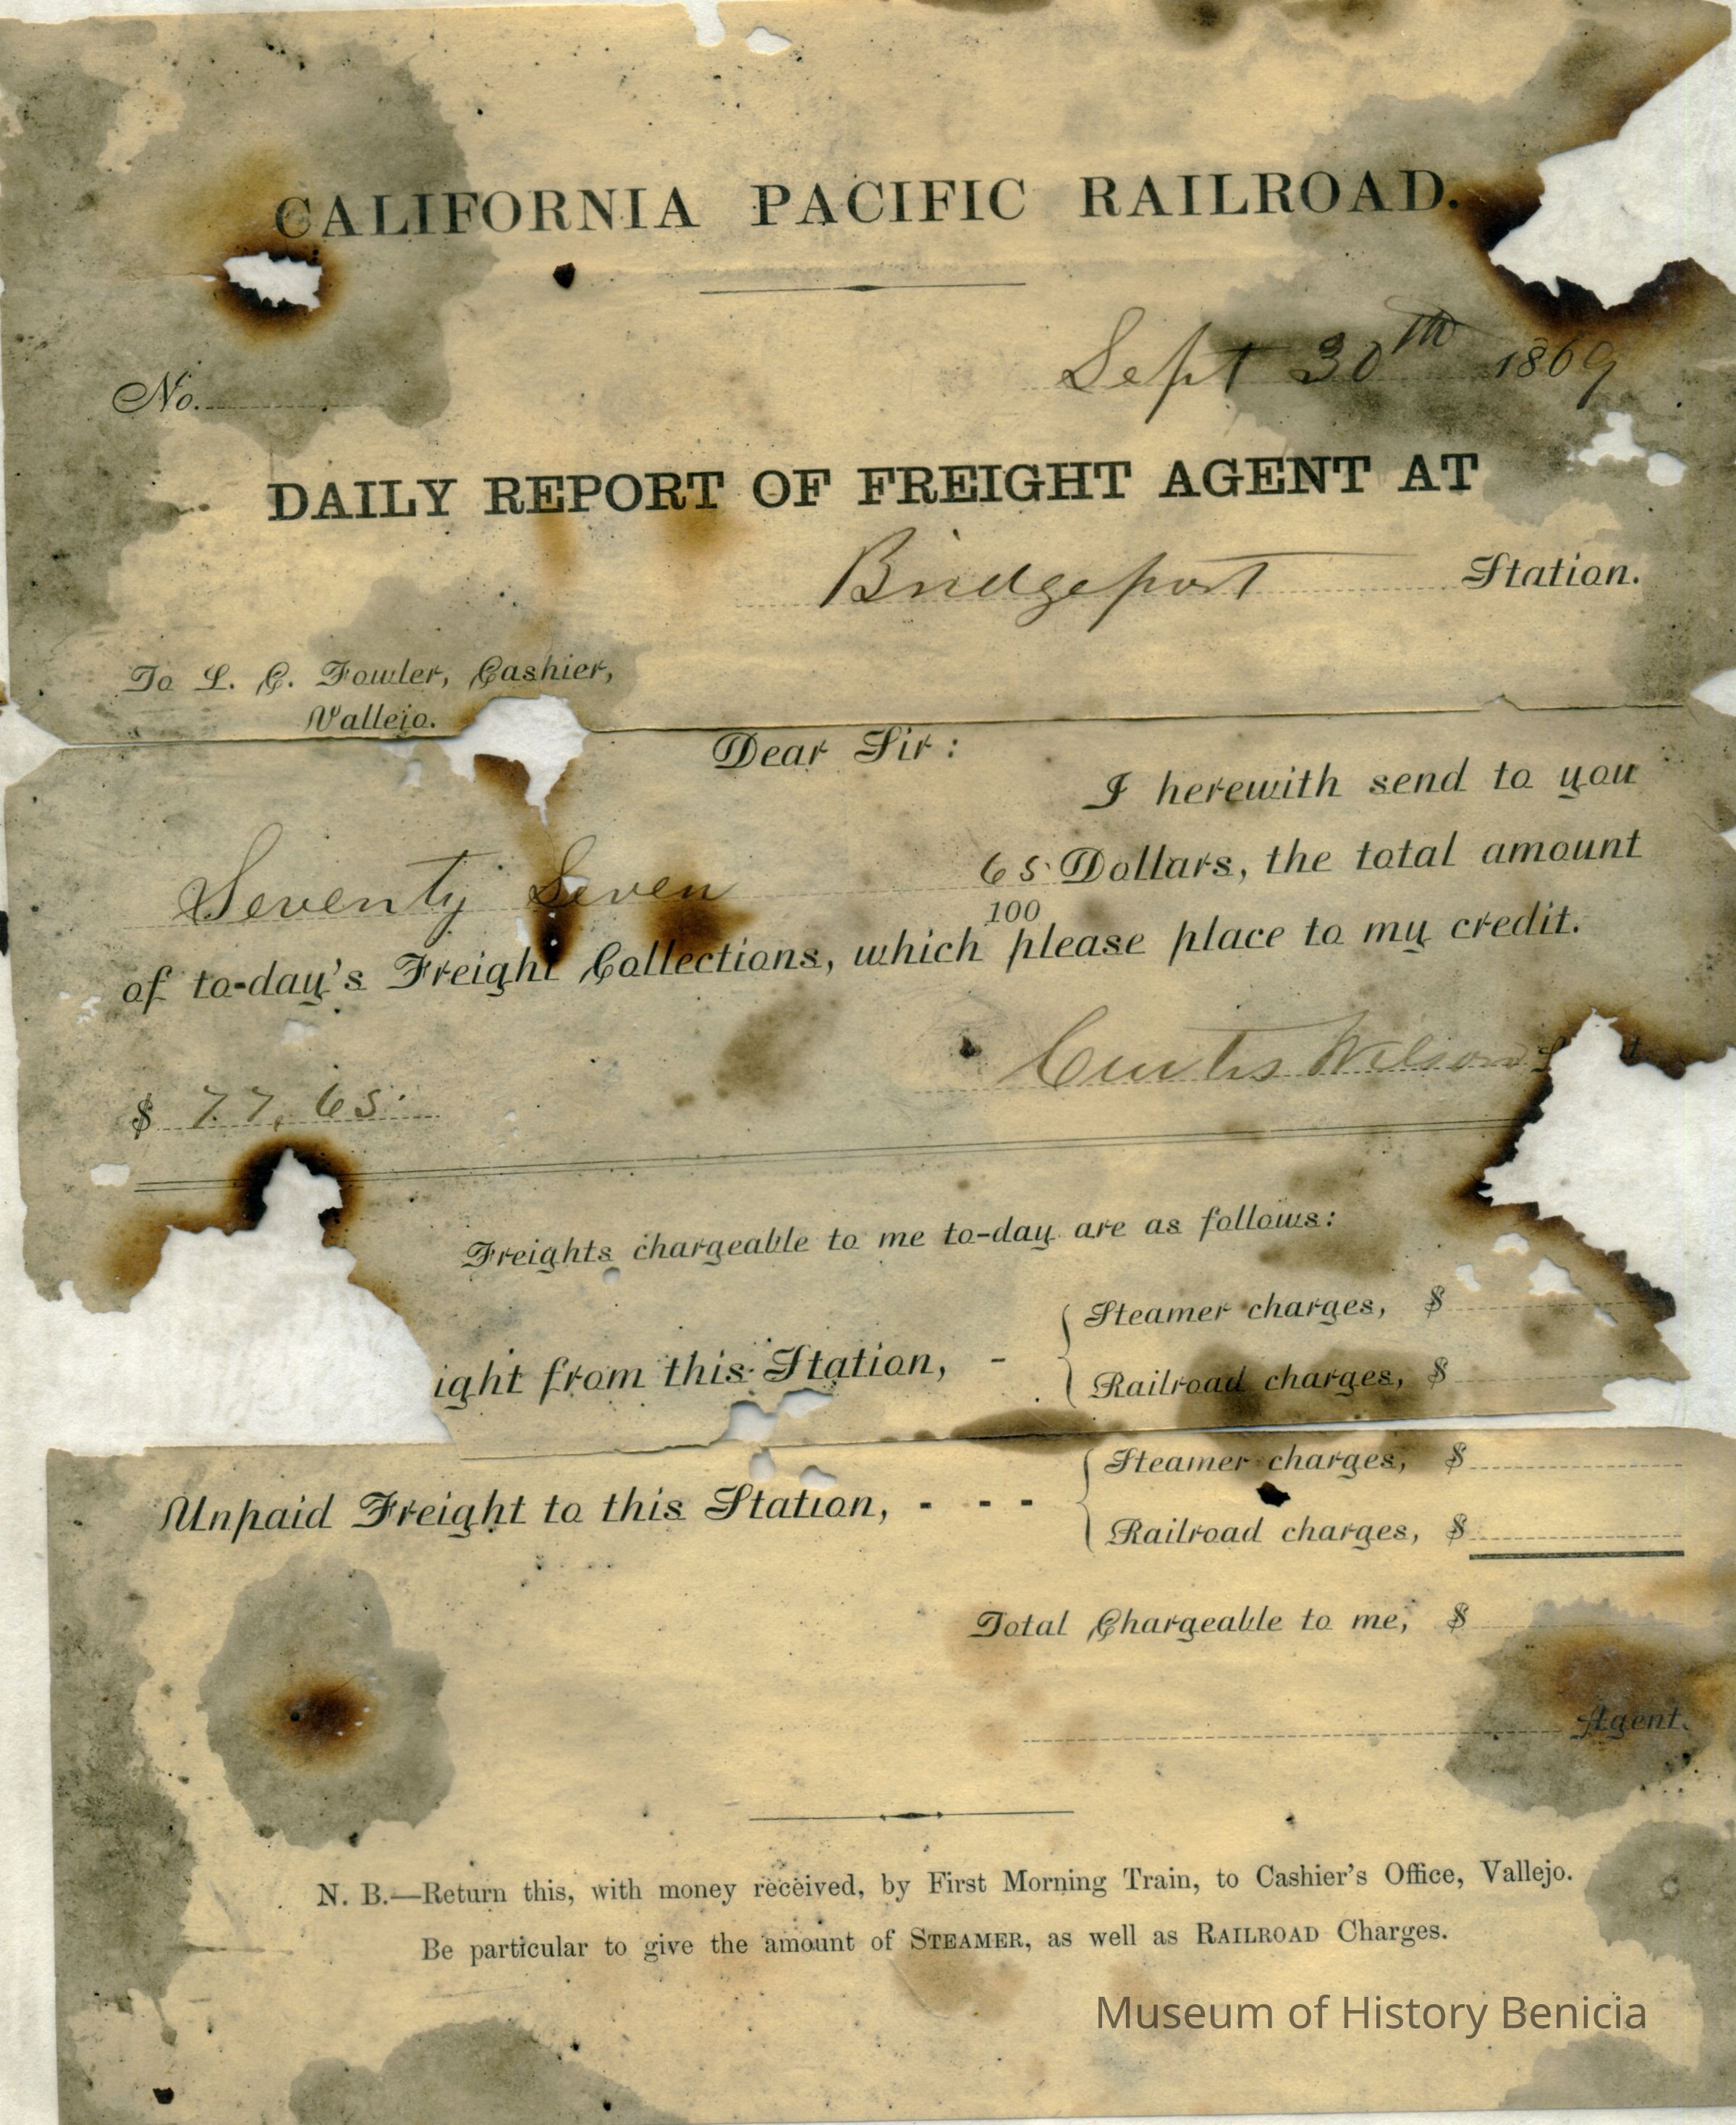 CALIFORNIA PACIFIC RAILROAD.
Sept 30th 1869
No.
DAILY REPORT OF FREIGHT AGENT AT
Bridgeport Station.
To L. C. Fowler, Cashier,
Vallejo.
Dear Sir:
I herewith send to you
Seventy Seven 65 Dollars, the total amount
100
of to-day's Freight Collections, which please place to my credit.
Curtis Wilson
$ 77,65
Freights chargeable to me to-day are as follows:
Steamer charges, $
ight from this Station, -
Railroad charges, $
Steamer charges, $
Unpaid Freight to this Station, - - -
Railroad charges, $
Total Chargeable to me, $
Agent.
N. B.—Return this, with money received, by First Morning Train, to Cashier's Office, Vallejo.
Be particular to give the amount of STEAMER, as well as RAILROAD Charges.
Museum of History Benicia